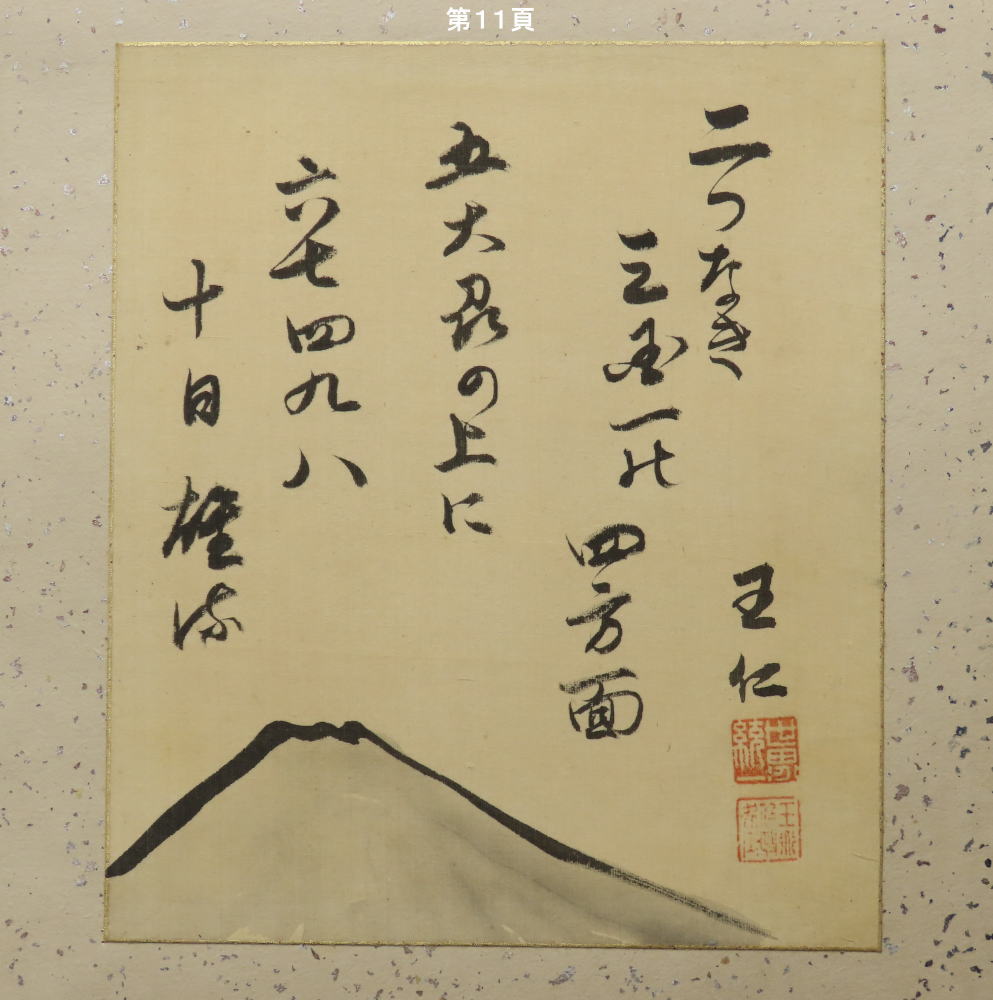 第11頁
二つなき
三国一の
四方面
五大の上に
六七四九八
十日
王仁